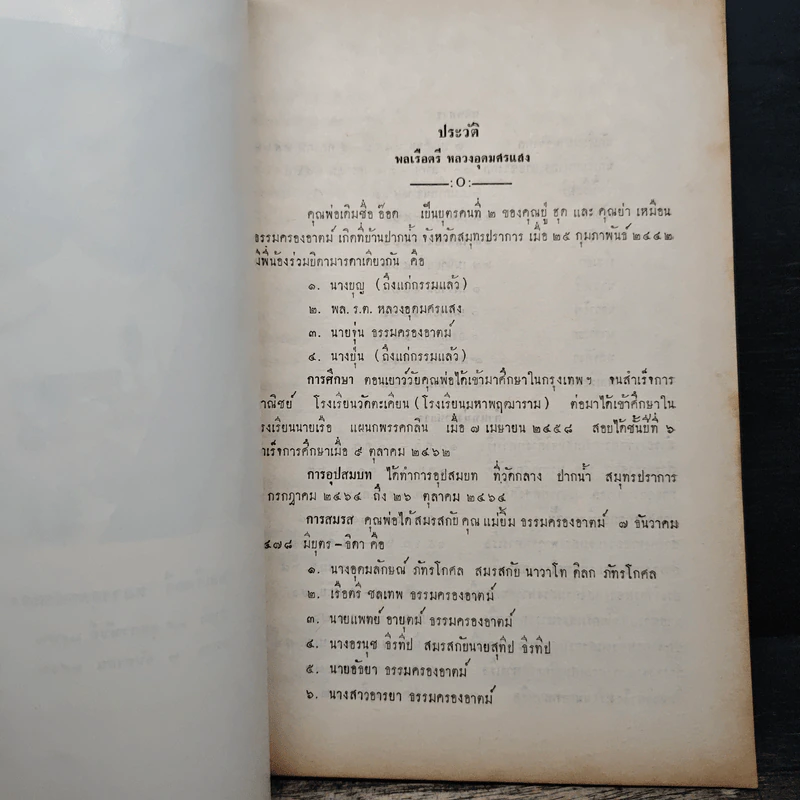 ประวัติ
พลเรือตรี หลวงอุดมศรแสง
———:O:———
คุณพ่อเดิมชื่อ อ๊อด เป็นบุตรคนที่ ๒ ของคุณปู่ ฮุด และ คุณย่า เหมือน
ธรรมครองอาตม์ เกิดที่บ้านปากน้ำ จังหวัดสมุทรปราการ เมื่อ ๒๕ กุมภาพันธ์ ๒๔๔๒
มีพี่น้องร่วมบิดามารดาเดียวกัน คือ
๑. นางบุญ (ถึงแก่กรรมแล้ว)
๒. พล. ร.ต. หลวงอุดมศรแสง
๓. นายจุ่น ธรรมครองอาตม์
๔. นางยุ้น (ถึงแก่กรรมแล้ว)
การศึกษา ตอนเยาว์วัยคุณพ่อได้เข้ามาศึกษาในกรุงเทพฯ จนสำเร็จการ
าณิชย์ โรงเรียนวัดตะเคียน (โรงเรียนมหาพฤฒาราม) ต่อมาได้เข้าศึกษาใน
โรงเรียนนายเรือ แผนกพรรคกลิน เมื่อ ๗ เมษายน ๒๔๕๘ สอบได้ชั้นปีที่ ๖
สำเร็จการศึกษาเมื่อ ๙ ตุลาคม ๒๔๖๒
การอุปสมบท ได้ทำการอุปสมบท ที่วัดกลาง ปากน้ำ สมุทรปราการ
กรกฎาคม ๒๔๖๔ ถึง ๒๖ ตุลาคม ๒๔๖๔
การสมรส คุณพ่อได้สมรสกับ คุณแม่ยิ้ม ธรรมครองอาตม์ ๗ ธันวาคม
๔๗๘ มีบุตร – ธิดา คือ
๑. นางอุดมลักษณ์ ภัทรโกศล สมรสกับ นาวาโท ดิลก ภัทรโกศล
๒. เรือตรี ชลเทพ ธรรมครองอาตม์
๓. นายแพทย์ อายุตม์ ธรรมครองอาตม์
๔. นางอรนุช จิรทิป สมรสกับนายสุทิป จิรทิป
๕. นายอัธยา ธรรมครองอาตม์
๖. นางสาวอารยา ธรรมครองอาตม์